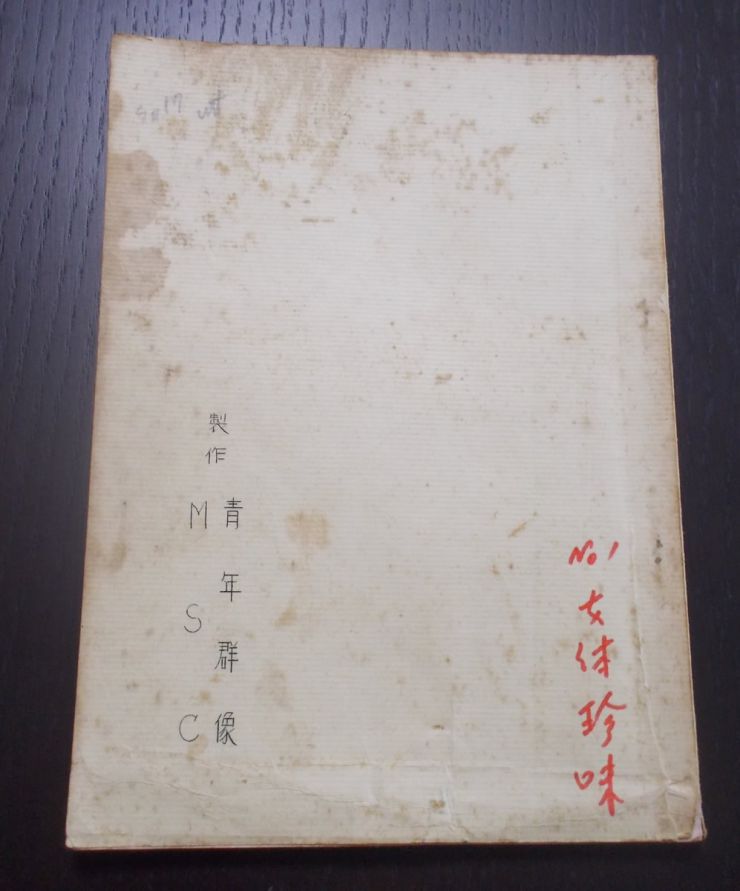 No 1
女体珍味
製作
青年群像
MSC